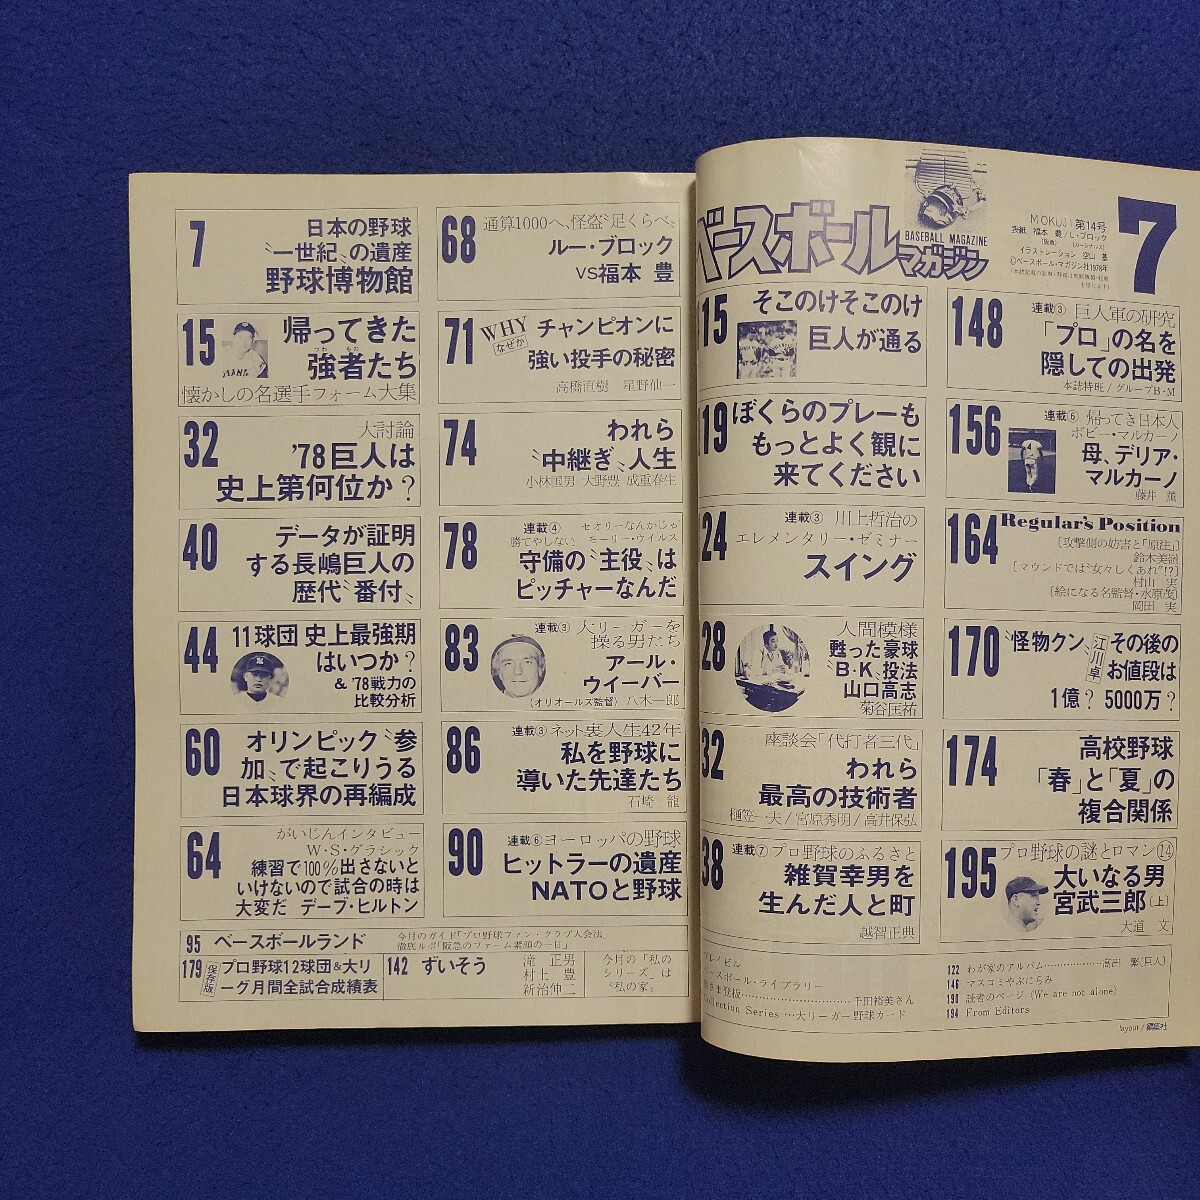 7
日本の野球
〝一世紀〟の遺産
野球博物館
15
帰ってきた
強者たち
つわ もの
懐かしの名選手フォーム大集
32
大討論
'78巨人は
史上第何位か?
40
データが証明
する長嶋巨人の
歴代〝番付〟
44
11球団 史上最強期
はいつか?
&'78戦力の
比較分析
60
オリンピック〝参
加〟で起こりうる
日本球界の再編成
64
がいじんインタビュー
W・S・グラシック
練習で100%出さないと
いけないので試合の時は
大変だ デーブ・ヒルトン
68
通算1000へ、怪盗〝足くらべ〟
ルー・ブロック
VS福本 豊
71
WHY
なぜか
チャンピオンに
強い投手の秘密
高橋直樹 星野仙一
74
われら
〝中継ぎ〟人生
小林国男 大野豊 成重春生
78
連載④ セオリーなんかじゃ
勝てやしない モーリー・ウイルス
守備の〝主役〟は
ピッチャーなんだ
83
連載③ 大リーガーを
操る男たち
アール・
ウイーバー
(オリオールズ監督) 八木一郎
86
連載③ ネット裏人生42年
私を野球に
導いた先達たち
石崎 龍
90
連載⑥ ヨーロッパの野球
ヒットラーの遺産
NATOと野球
95 ベースボールランド
今月のガイド「プロ野球ファン・クラブ入会法」
徹底ルポ「阪急のファーム素顔の一日」
179 保存版 プロ野球12球団&大リ
ーグ月間全試合成績表
142 ずいそう
滝 正男
村上 豊
新治伸二
今月の「私の
シリーズ」は
〝私の家〟
ベースボール
マガジン
BASEBALL MAGAZINE
MOKUJI 第14号
表紙 福本 豊/L・ブロック
(阪急) (カージナルス)
イラストレーション 空山 基
©ベースボール・マガジン社1978年
7
15
そこのけそこのけ
巨人が通る
19
ぼくらのプレーも
もっとよく観に
来てください
24
連載③ 川上哲治の
エレメンタリー・ゼミナー
スイング
28
人間模様
甦った豪球
〝B・K〟投法
山口高志
菊谷匡祐
32
座談会「代打者三代」
われら
最高の技術者
樋笠一夫/宮原秀明/高井保弘
38
連載⑦ プロ野球のふるさと
雑賀幸男を
生んだ人と町
越智正典
148
連載③ 巨人軍の研究
「プロ」の名を
隠しての出発
本誌特班/グループB・M
156
連載⑥ 帰ってき日本人
ボビー・マルカーノ
母、デリア・
マルカーノ
藤井 薫
164
Regular's Position
〔攻撃側の妨害と「原注」〕
鈴木美嶺
〔マウンドでは〝女々しくあれ〟!?〕
村山 実
〔絵になる名監督・水原茂〕
岡田 実
170
〝怪物クン〟
江川卓
その後の
お値段は
1億? 5000万?
174
高校野球
「春」と「夏」の
複合関係
195
プロ野球の謎とロマン⑭
大いなる男
宮武三郎(上)
大道 文
ベースボール・ライブラリー
千田裕美さん
Collection Series …大リーガー野球カード
122 わが家のアルバム…………高田 繁(巨人)
146 マスコミやぶにらみ
190 読者のページ (We are not alone)
194 From Editors
layout/